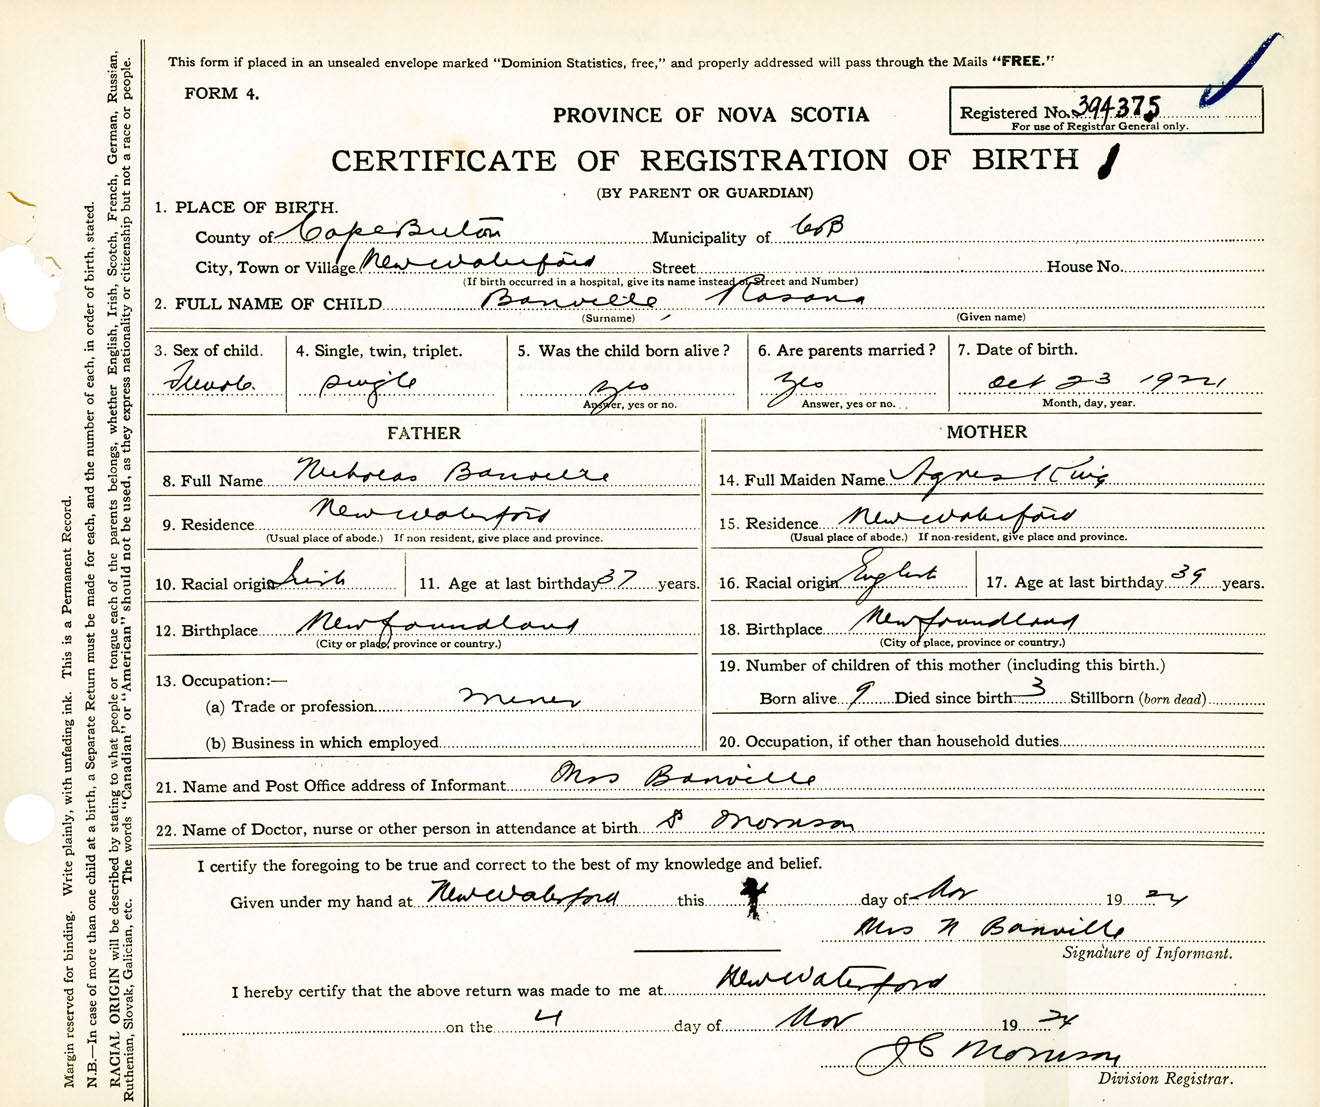 This form if placed in an unsealed envelope marked "Dominion Statistics, free," and properly addressed will pass through the Mails "FREE."
FORM 4.
PROVINCE OF NOVA SCOTIA
Registered No. 394375
For use of Registrar General only.
CERTIFICATE OF REGISTRATION OF BIRTH
(BY PARENT OR GUARDIAN)
1. PLACE OF BIRTH.
County of Cape Breton Municipality of CB
City, Town or Village New Waterford Street House No.
(If birth occurred in a hospital, give its name instead of Street and Number)
2. FULL NAME OF CHILD Banville Rosana
(Surname) (Given name)
3. Sex of child. 4. Single, twin, triplet. 5. Was the child born alive? 6. Are parents married? 7. Date of birth.
Female single yes yes Oct 23 1924
Answer, yes or no. Answer, yes or no. Month, day, year.
FATHER MOTHER
8. Full Name Nicholas Banville 14. Full Maiden Name Agnes King
9. Residence New Waterford 15. Residence New Waterford
(Usual place of abode.) If non resident, give place and province. (Usual place of abode.) If non-resident, give place and province.
10. Racial origin Irish 11. Age at last birthday 37 years. 16. Racial origin English 17. Age at last birthday 39 years.
12. Birthplace Newfoundland 18. Birthplace Newfoundland
(City or place, province or country.) (City or place, province or country.)
13. Occupation:— 19. Number of children of this mother (including this birth.)
(a) Trade or profession Miner Born alive 9 Died since birth 3 Stillborn (born dead)
(b) Business in which employed 20. Occupation, if other than household duties
21. Name and Post Office address of Informant Mrs Banville
22. Name of Doctor, nurse or other person in attendance at birth Morrison
I certify the foregoing to be true and correct to the best of my knowledge and belief.
Given under my hand at New Waterford this 4 day of Nov 1924
Mrs N Banville
Signature of Informant.
I hereby certify that the above return was made to me at New Waterford
on the 4 day of Nov 1924
J C Morrison
Division Registrar.
Margin reserved for binding. Write plainly, with unfading ink. This is a Permanent Record.
N.B.—In case of more than one child at a birth, a Separate Return must be made for each, and the number of each, in order of birth, stated.
RACIAL ORIGIN will be described by stating to what people or tongue each of the parents belongs, whether English, Irish, Scotch, French, German, Russian,
Ruthenian, Slovak, Galician, etc. The words "Canadian" or "American" should not be used, as they express nationality or citizenship but not a race or people.